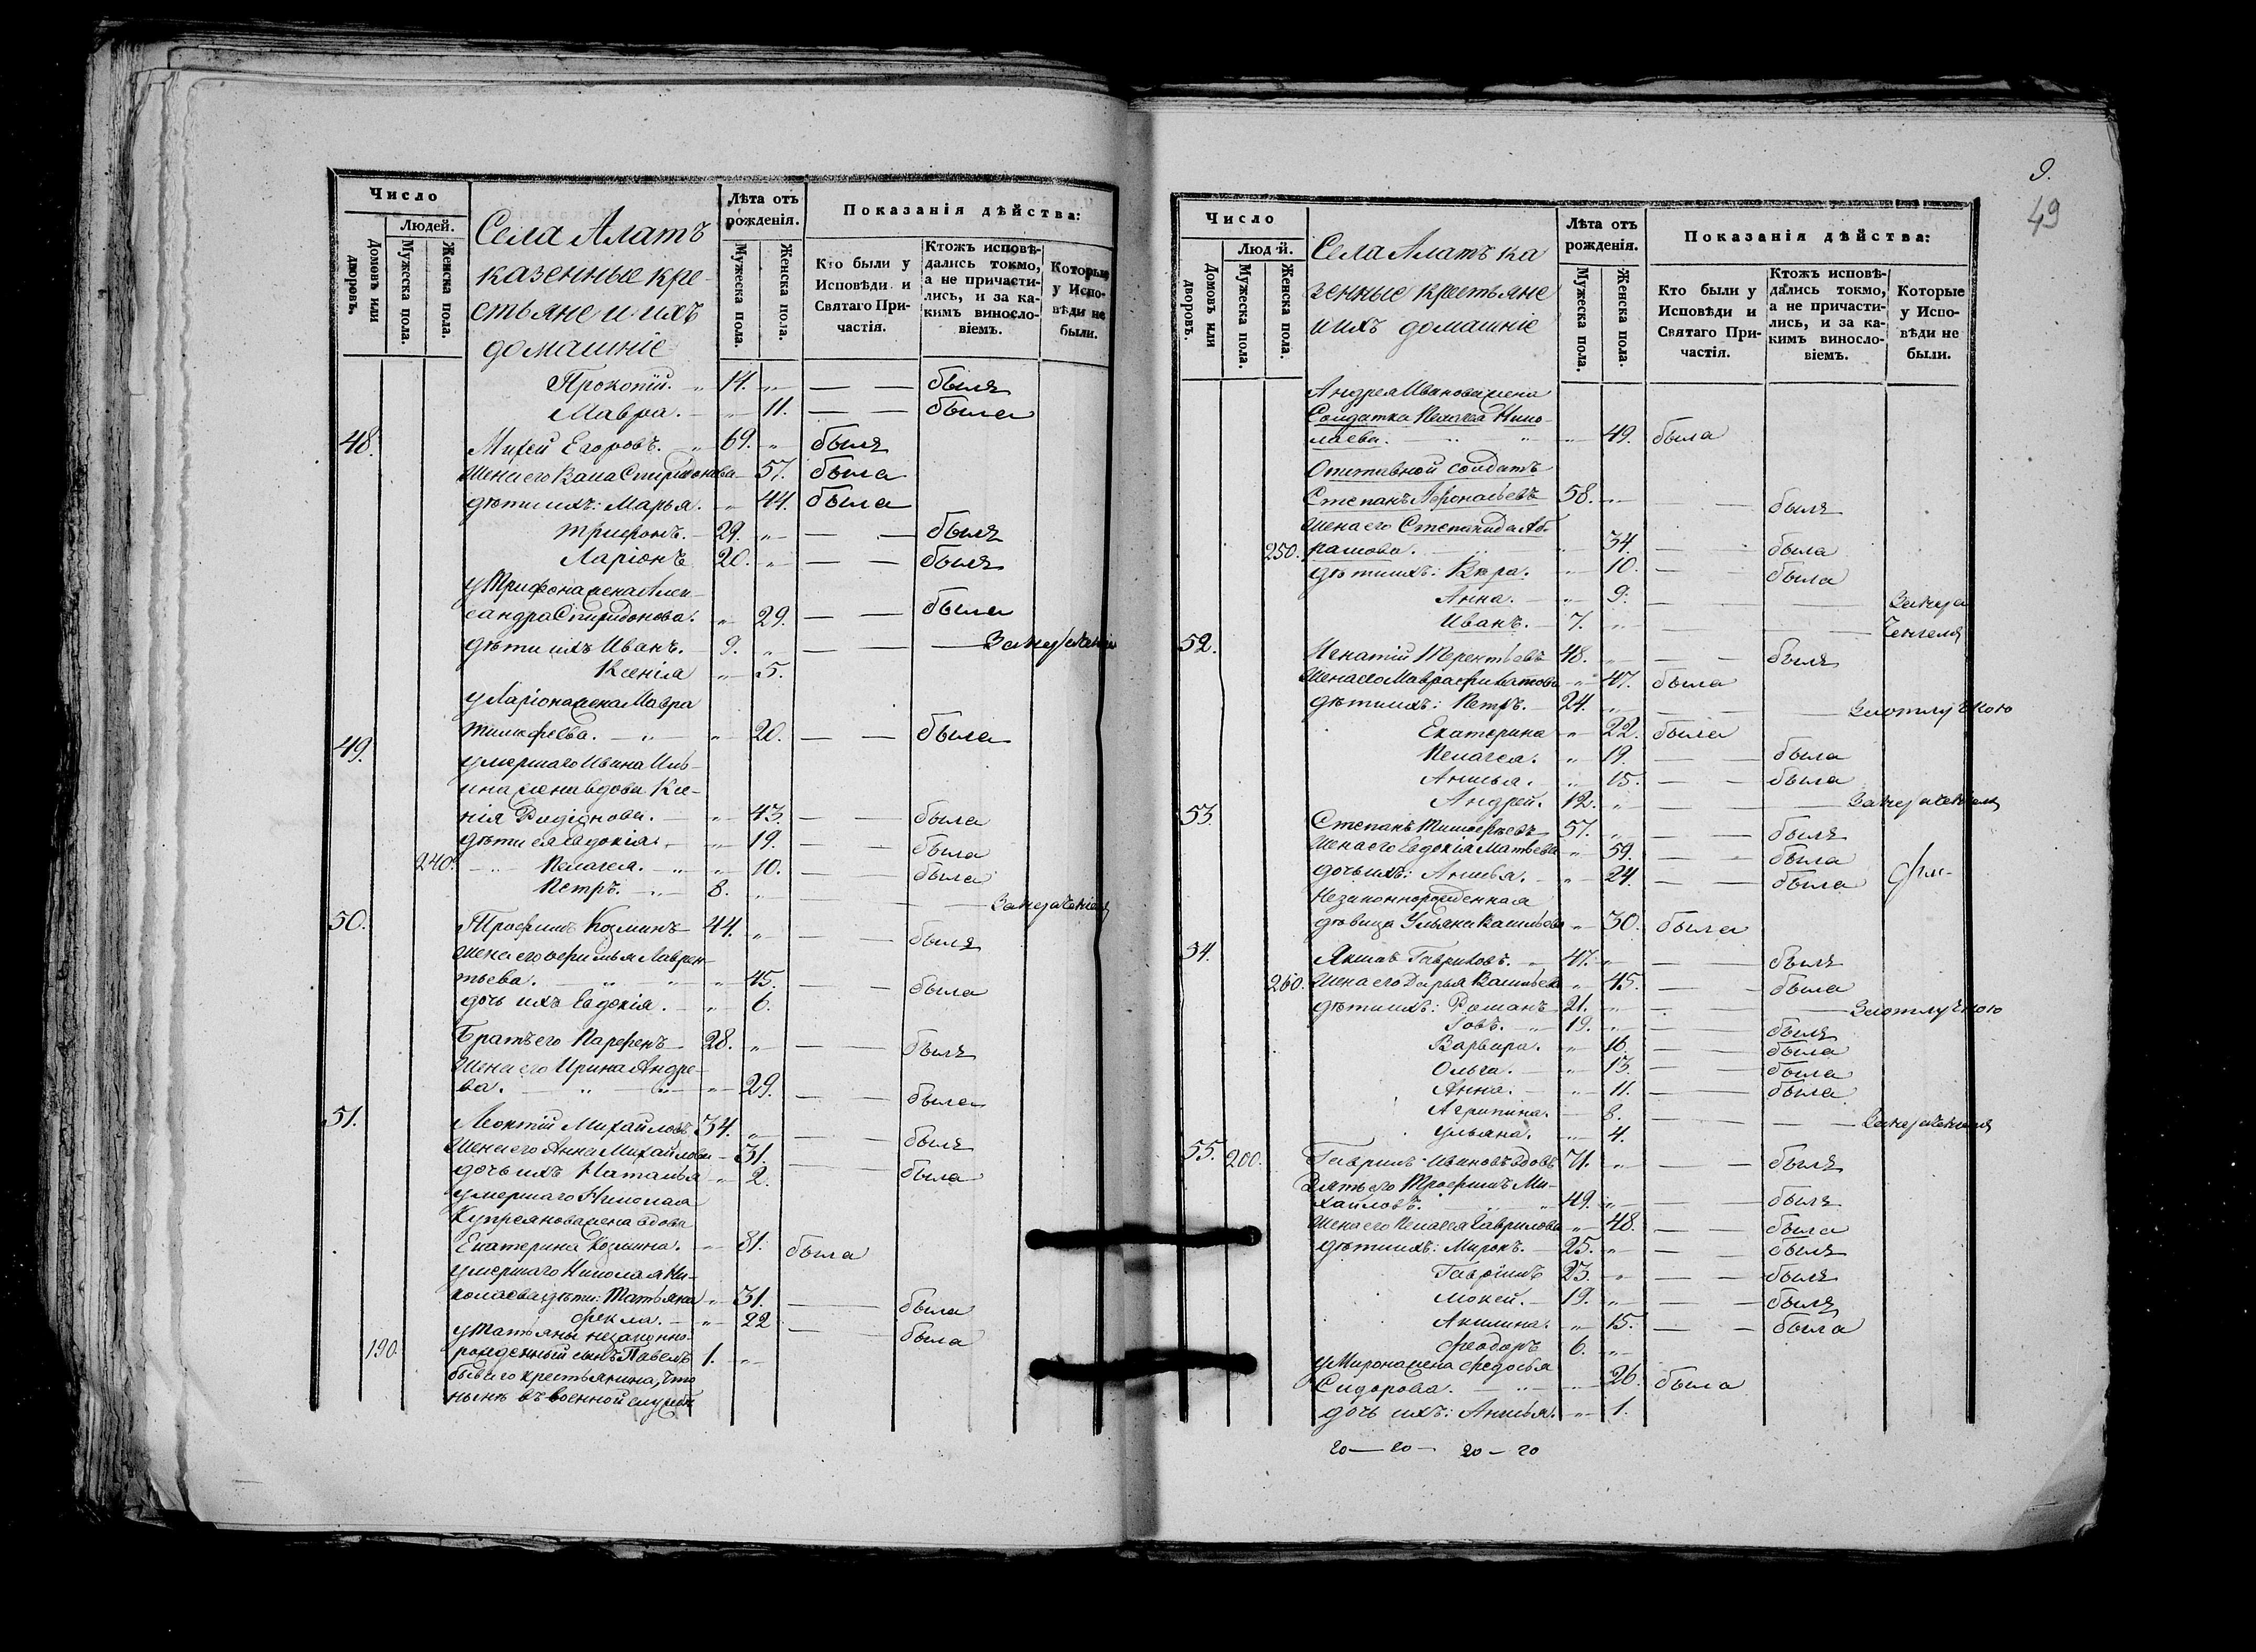 Число
Людей.
Домовъ или дворовъ.
Мужеска пола.
Женска пола.
Села Алатъ
казенные кре-
стьяне и ихъ
домашніе
Лѣта отъ рожденія.
Мужеска пола.
Женска пола.
Показанія дѣйства:
Кто были у Исповѣди и Святаго Причастія.
Ктожъ исповѣдались токмо, а не причастились, и за какимъ винословіемъ.
Которые у Исповѣди не были.
Прокопій. 14. былъ
Мавра. 11. была
48. Михей Егоровъ. 69. былъ
жена его Спиридонова 57. была
дѣти ихъ: Марья. 44. была
Трифонъ. 29. былъ
Ларіонъ 20. былъ
у Трифона жена Алек-
сандра Спиридонова. 29. была
дѣти ихъ Иванъ. 9.
Ксенія 5.
у Ларіона жена Мавра
Тимофеева. 20. была
49. умершаго Ивана
жена вдова Ксе-
нія Родіонова. 43. была
дѣти ея Евдокія. 19. была
240. Пелагея. 10. была
Петръ. 8.
50. Трофимъ Козминъ 44. былъ
жена его Лаврен-
тьева. 45. была
дочь ихъ Евдокія. 6.
Братъ его Парфенъ 28. былъ
жена его Ирина Андре-
ва. 29. была
51. Леонтій Михайловъ 34. былъ
жена его Анна Михайлова 31. была
дочь ихъ Наталья 2.
умершаго Николая
Купреянова жена вдова
Екатерина Козмина. 81. была
умершаго Николая Ни-
колаева дѣти: Татьяна 31. была
Фекла. 22 была
у Татьяны незаконно-
190. рожденный сынъ Павелъ 1.
бывшаго крестьянина, что
нынѣ въ военной службѣ
9.
49
Число
Людей.
Домовъ или дворовъ.
Мужеска пола.
Женска пола.
Села Алатъ ка
зенные крестьяне
и ихъ домашніе
Лѣта отъ рожденія.
Мужеска пола.
Женска пола.
Показанія дѣйства:
Кто были у Исповѣди и Святаго Причастія.
Ктожъ исповѣдались токмо, а не причастились, и за какимъ винословіемъ.
Которые у Исповѣди не были.
Андрея Иванова жена
Солдатка Пелагея Нико-
лаева. 49. была
Отставной солдатъ
Степанъ Афонасьевъ 58. былъ
жена его Степанида Аб-
250. рамова. 34. была
дѣти ихъ: Вѣра. 10. была
Анна. 9.
Иванъ. 7.
52. Игнатій Терентьевъ 48. былъ
жена его Мавра 47. была
дѣти ихъ: Петръ. 24. За отлучкою
Екатерина 22. была
Пелагея. 19. была
Анисья. 15. была
Андрей. 12.
53. Степанъ Тимофеевъ 57. былъ
жена его Евдокія Матвева 59. была
дочь ихъ: Анисья. 24. была
Незаконнорожденная
дѣвица Ульяна Васильева 30. была
54. Якимъ Гавриловъ. 47. былъ
260. жена его Дарья Васильева 45. была
дѣти ихъ: Романъ 21. За отлучкою
Іовъ. 19. былъ
Варвара. 16 была
Ольга. 13. была
Анна. 11. была
Агрипина. 8.
Ульяна. 4.
55. 200. Гаврилъ Ивановъ вдовъ 71. былъ
Зять его Трофимъ Ми-
хайловъ. 49. былъ
жена его Пелагея Гаврилова 48. была
дѣти ихъ: Миронъ. 25. былъ
Гавріилъ 23. былъ
Мокей. 19. былъ
Акилина. 15. была
Феодоръ 6.
у Мирона жена Федосья
Сидорова. 26. была
дочь ихъ: Анисья. 1.
20 — 20 — 20 — 20